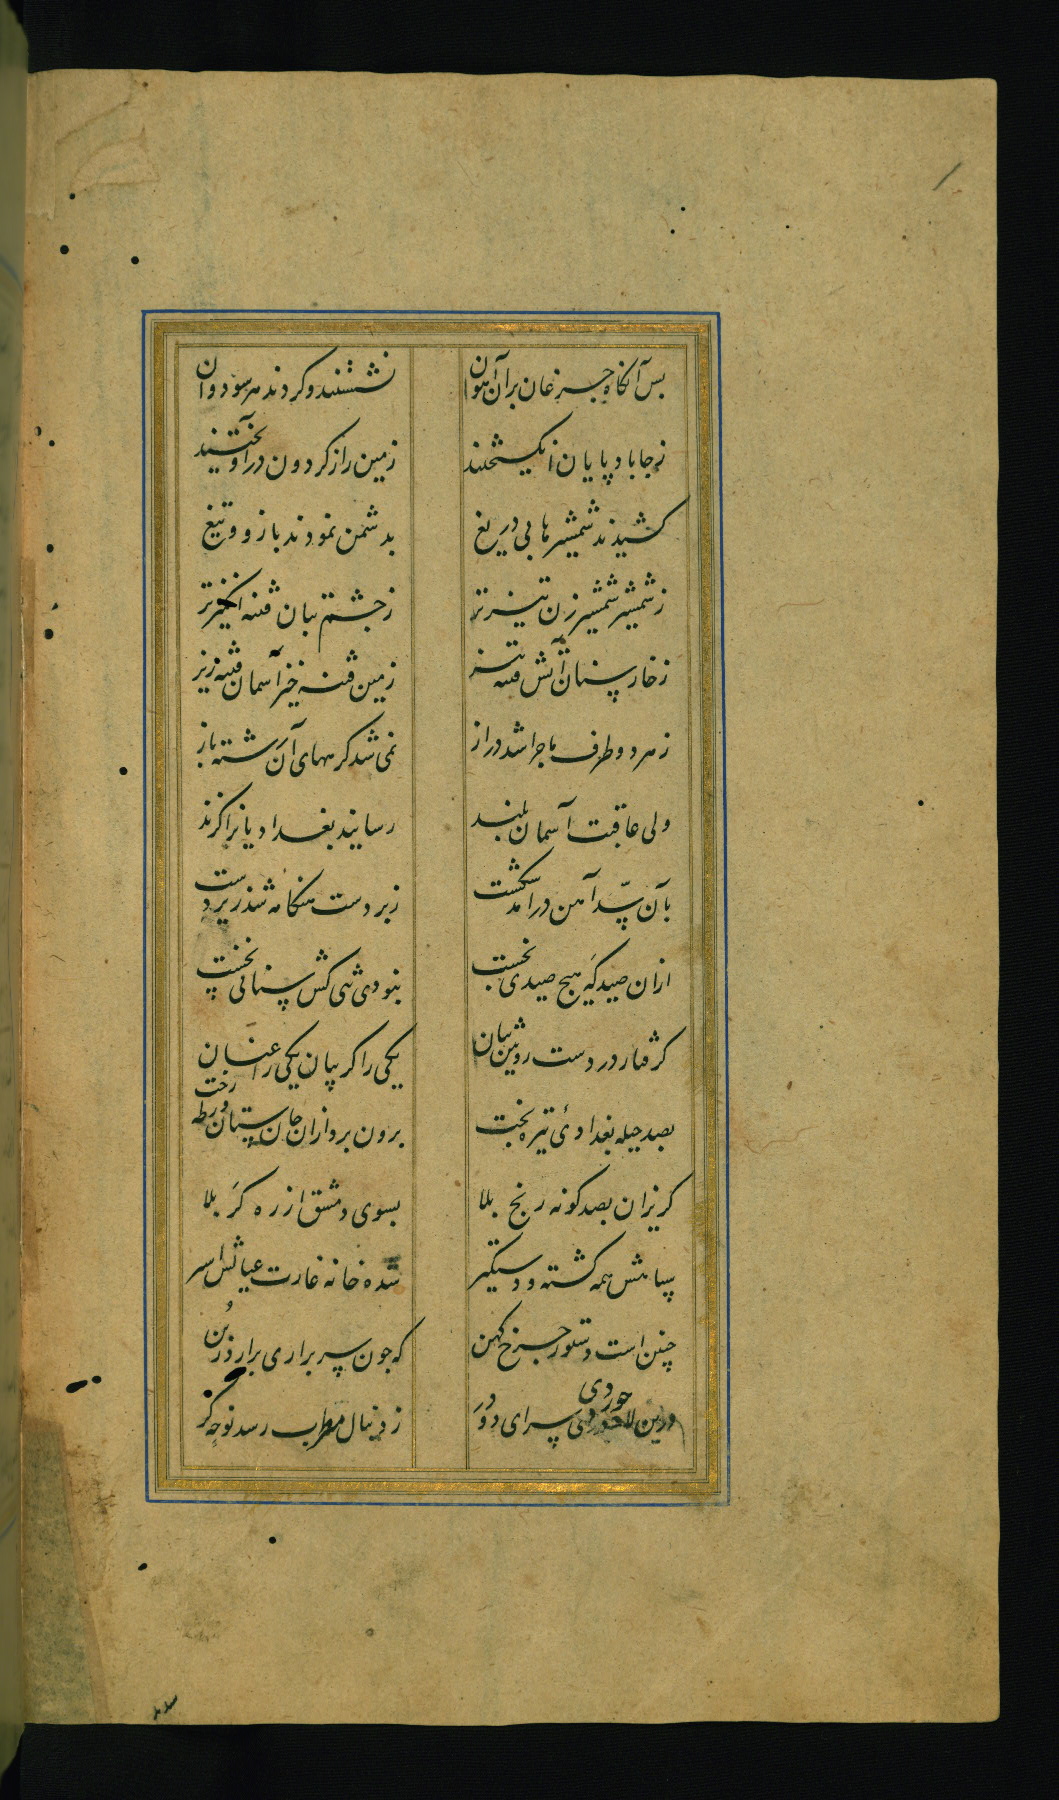 پس آنگاه جرغان بران آهوان نشستند و کردند هر سو دوان
زجا بادپایان انگیختند زمین را ز کردون درآویختند
کشیدند شمشیرها بی دریغ بدشمن نمودند بازو و تیغ
ز شمشیر شمشیرزن تیزتر ز چشم بتان فتنه انگیزتر
سنان آتش فتنه تیز زمین فتنه خیز آسمان فتنه ریز
ز هر دو طرف ماجرا شد دراز نمی شد کرههای آن رشته باز
ولی عاقبت آسمان بلند رسانید بغدادیانرا کزند
بآن سد آهن درآمد شکست زبردست هنکامه شد زیردست
ازان صیدکه هیچ صیدی نجست نبودی تنی کش سنانی نخست
کرفتار در دست روئین تنان یکی را کریبان یکی را عنان
بصد حیله بغدادئ تیره بخت برون برد ازان جان ستان ورطه رخت
کریزان بصد کونه رنج بلا بسوی دمشق از ره کربلا
سپاهش همه کشته و دستکیر شده خانه غارت عیالش اسیر
چنین است دستور چرخ کهن که چون سر براری برارد ز بن
درین لاجوردی سرای دودر ز دنبال مطرب رسد نوحه کر